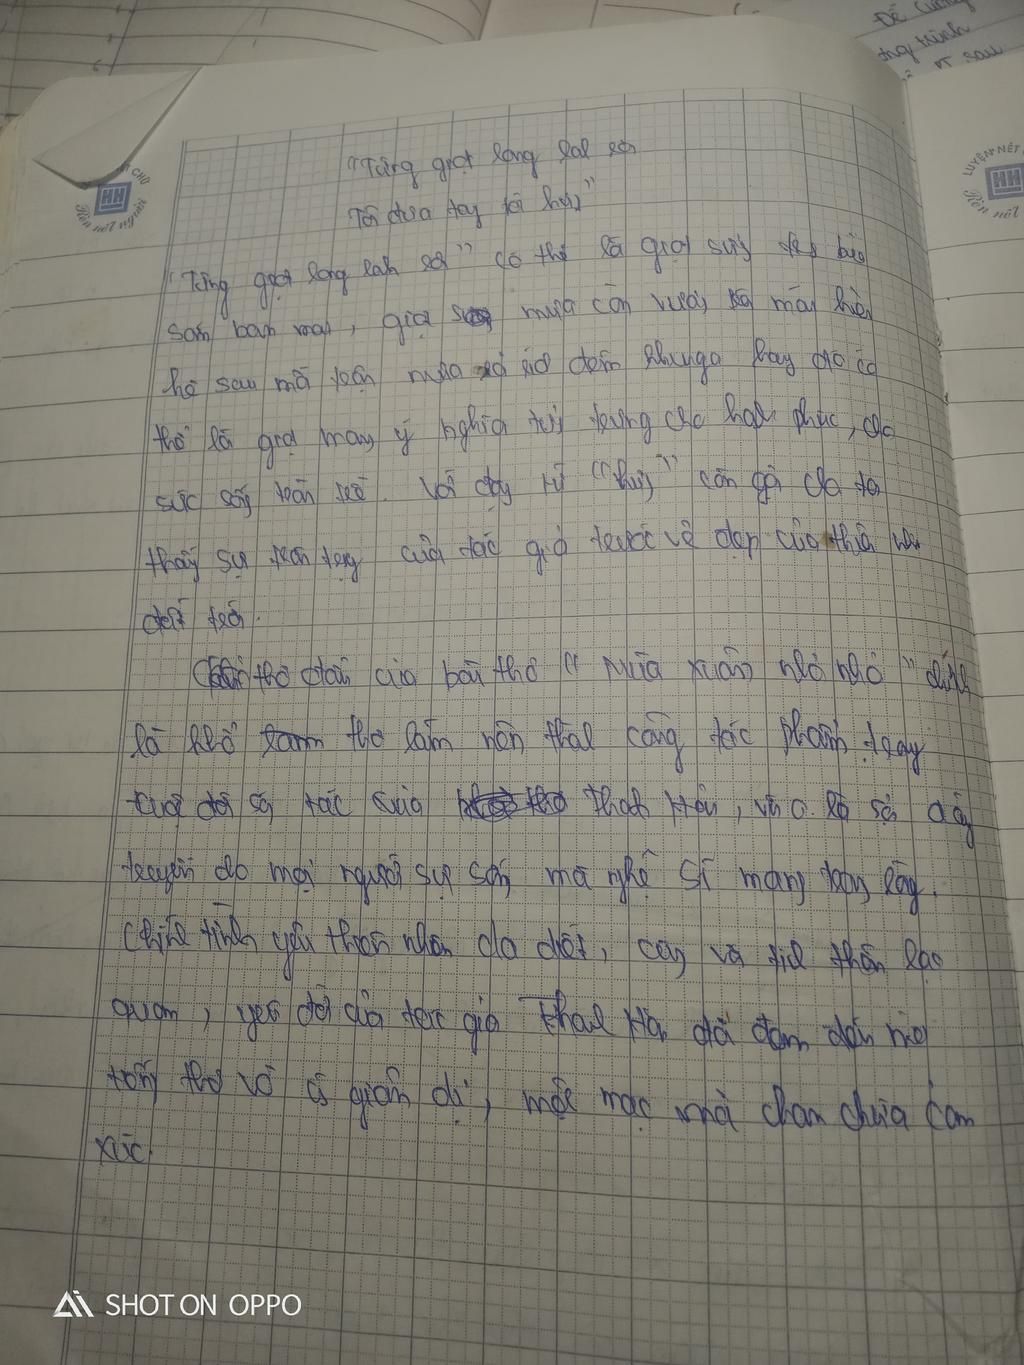 Đề cương
trình
sau
LUYỆN NÉT
Rèn nết
CHỮ
HH
HH
Rèn nết người
"Từng giọt long lanh rơi
Tôi đưa tay tôi hứng"
"Từng giọt long lanh rơi" có thể là giọt sương
sớm ban mai, giọt mưa còn vương mái hiên
hè sau mà trận mưa đêm hay đó có
thể là giọt mang ý nghĩa tượng trưng cho hạnh phúc, cho
sức sống tràn trề. Và động từ "hứng" còn gợi cho ta
thấy sự trân trọng của tác giả trước vẻ đẹp của thiên nhiên
đất trời.
thơ đầu của bài thơ "Mùa xuân nho nhỏ" chính
là khổ thơ làm nên thành công tác phẩm trong
cuộc đời sáng tác của Thanh Hải, và là sợi dây
truyền cho mọi người sự sống mà nghệ sĩ mang trong lòng.
Chính tình yêu thiên nhiên da diết, cùng và tinh thần lạc
quan, yêu đời của tác giả Thanh Hải đã đem đến một
trong thơ vô giản dị, mộc mạc mà chan chứa cảm
xúc.
SHOT ON OPPO